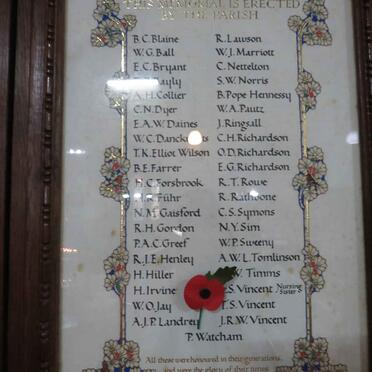 THIS MEMORIAL IS ERECTED
BY THE PARISH
B.C. Blaine
W.G. Ball
E.C. Bryant
Bayly
A.H. Collier
C.N. Dyer
E.A.W. Daines
W.C. Danckwerts
T.K. Elliot Wilson
B.E. Farrer
H.C. Forsbrook
H.R. Führ
N.M. Gaisford
R.H. Gordon
P.A.C. Greef
R.J.E. Henley
H. Hiller
H. Irvine
W.O. Jay
A.J.P. Landrey
R. Lawson
W.J. Marriott
C. Nettelton
S.W. Norris
B. Pope Hennessy
W.A. Pautz
J. Ringsall
C.H. Richardson
O.D. Richardson
E.G. Richardson
R.T. Rowe
R. Rathbone
C.S. Symons
N.Y. Sim
W.P. Sweeny
A.W.L. Tomlinson
W. Timms
S. Vincent Nursing Sister
T.S. Vincent
J.R.W. Vincent
P. Watcham
All these were honoured in their generations,
and were the glory of their times